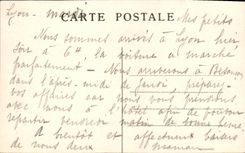 CARTE POSTALE
Lyon - mardi
Mes petits
Nous sommes arrivés à Lyon hier
soir à 6H, la voiture a marché
parfaitement - Nous arriverons à Besançon
dans l'après-midi de jeudi, préparez
vos affaires car nous vous prendrons
avec nous à l'hôtel afin de pouvoir
repartir vendredi matin de bonne heure
A bientôt et affectueux baisers
de nous deux
maman